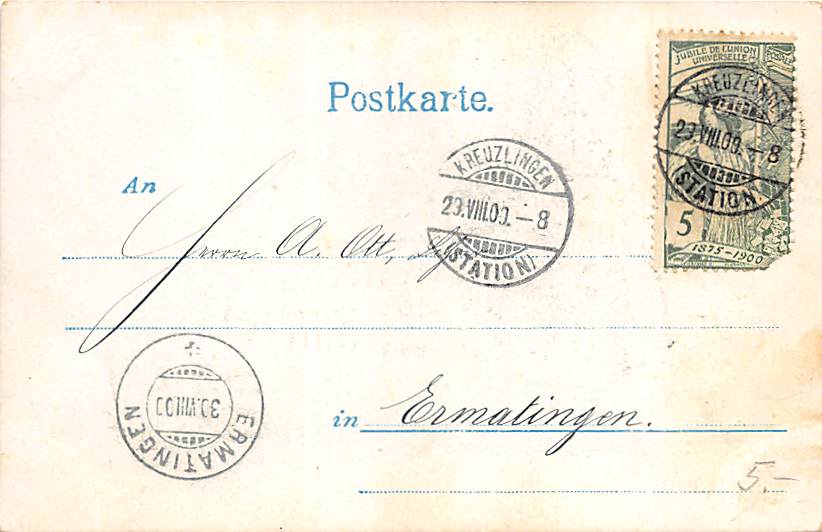 JUBILÉ DE L'UNION
UNIVERSELLE POSTALE
KREUZLINGEN
29.VIII.00.–8
(STATION)
5
1875–1900
Postkarte.
KREUZLINGEN
29.VIII.00.–8
(STATION)
An
Herrn A. Ott,
ERMATINGEN
30.VIII.00
in Ermatingen.
5.-